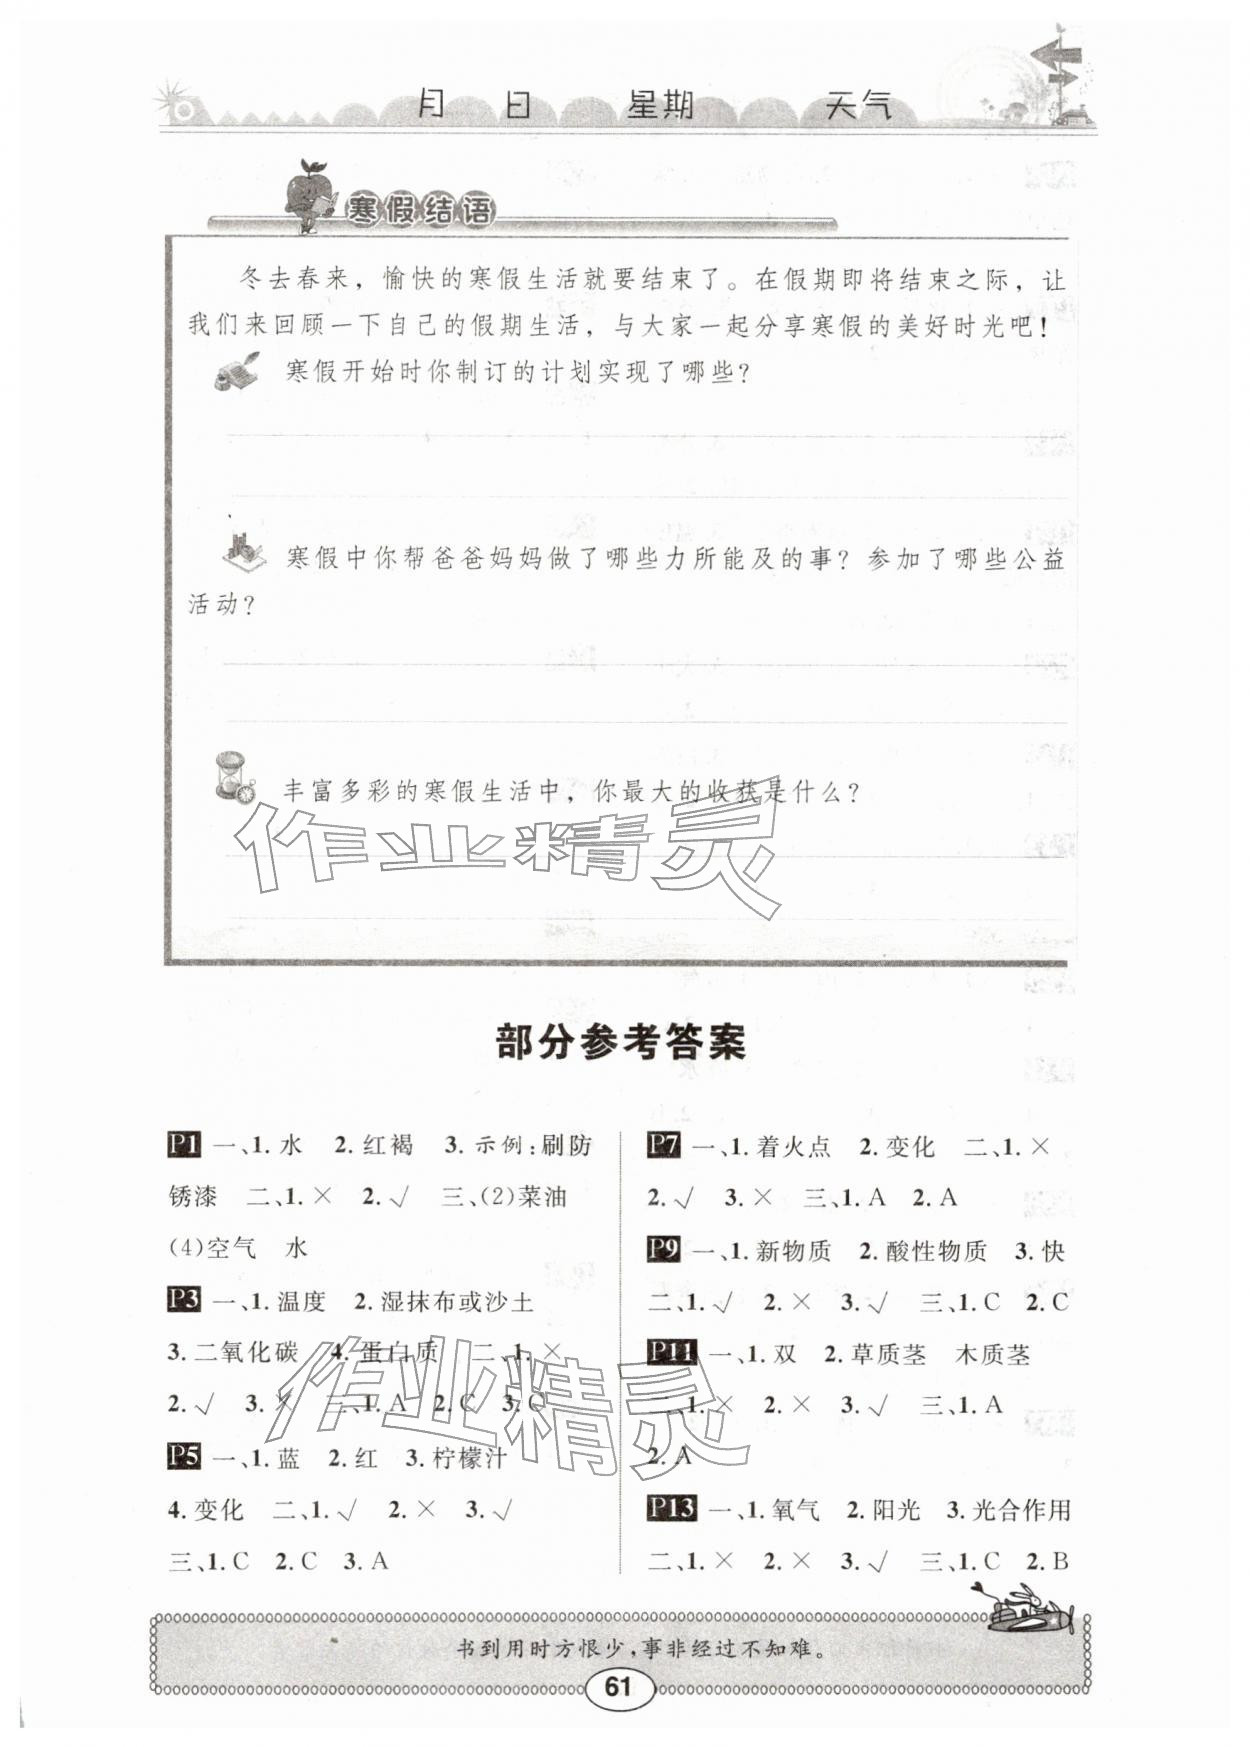 月 日 星期 天气
寒假结语
冬去春来，愉快的寒假生活就要结束了。在假期即将结束之际，让
我们来回顾一下自己的假期生活，与大家一起分享寒假的美好时光吧！
寒假开始时你制订的计划实现了哪些？
寒假中你帮爸爸妈妈做了哪些力所能及的事？参加了哪些公益
活动？
丰富多彩的寒假生活中，你最大的收获是什么？
作业精灵
部分参考答案
P1 一、1. 水 2. 红褐 3. 示例：刷防
锈漆 二、1. × 2. √ 三、(2)菜油
(4)空气 水
P3 一、1. 温度 2. 湿抹布或沙土
3. 二氧化碳 4. 蛋白质 二、1. ×
2. √ 3. × 三、1. A 2. C 3. C
P5 一、1. 蓝 2. 红 3. 柠檬汁
4. 变化 二、1. √ 2. × 3. √
三、1. C 2. C 3. A
P7 一、1. 着火点 2. 变化 二、1. ×
2. √ 3. × 三、1. A 2. A
P9 一、1. 新物质 2. 酸性物质 3. 快
二、1. √ 2. × 3. √ 三、1. C 2. C
P11 一、1. 双 2. 草质茎 木质茎
二、1. × 2. × 3. √ 三、1. A
2. A
P13 一、1. 氧气 2. 阳光 3. 光合作用
二、1. × 2. × 3. √ 三、1. C 2. B
作业精灵
书到用时方恨少，事非经过不知难。
61